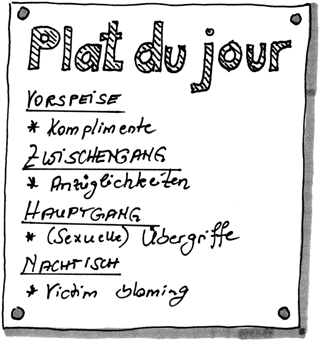 Plat du jour
VORSPEISE
* Komplimente
ZWISCHENGANG
* Anzüglichkeiten
HAUPTGANG
* (Sexuelle) Übergriffe
NACHTISCH
* Victim blaming